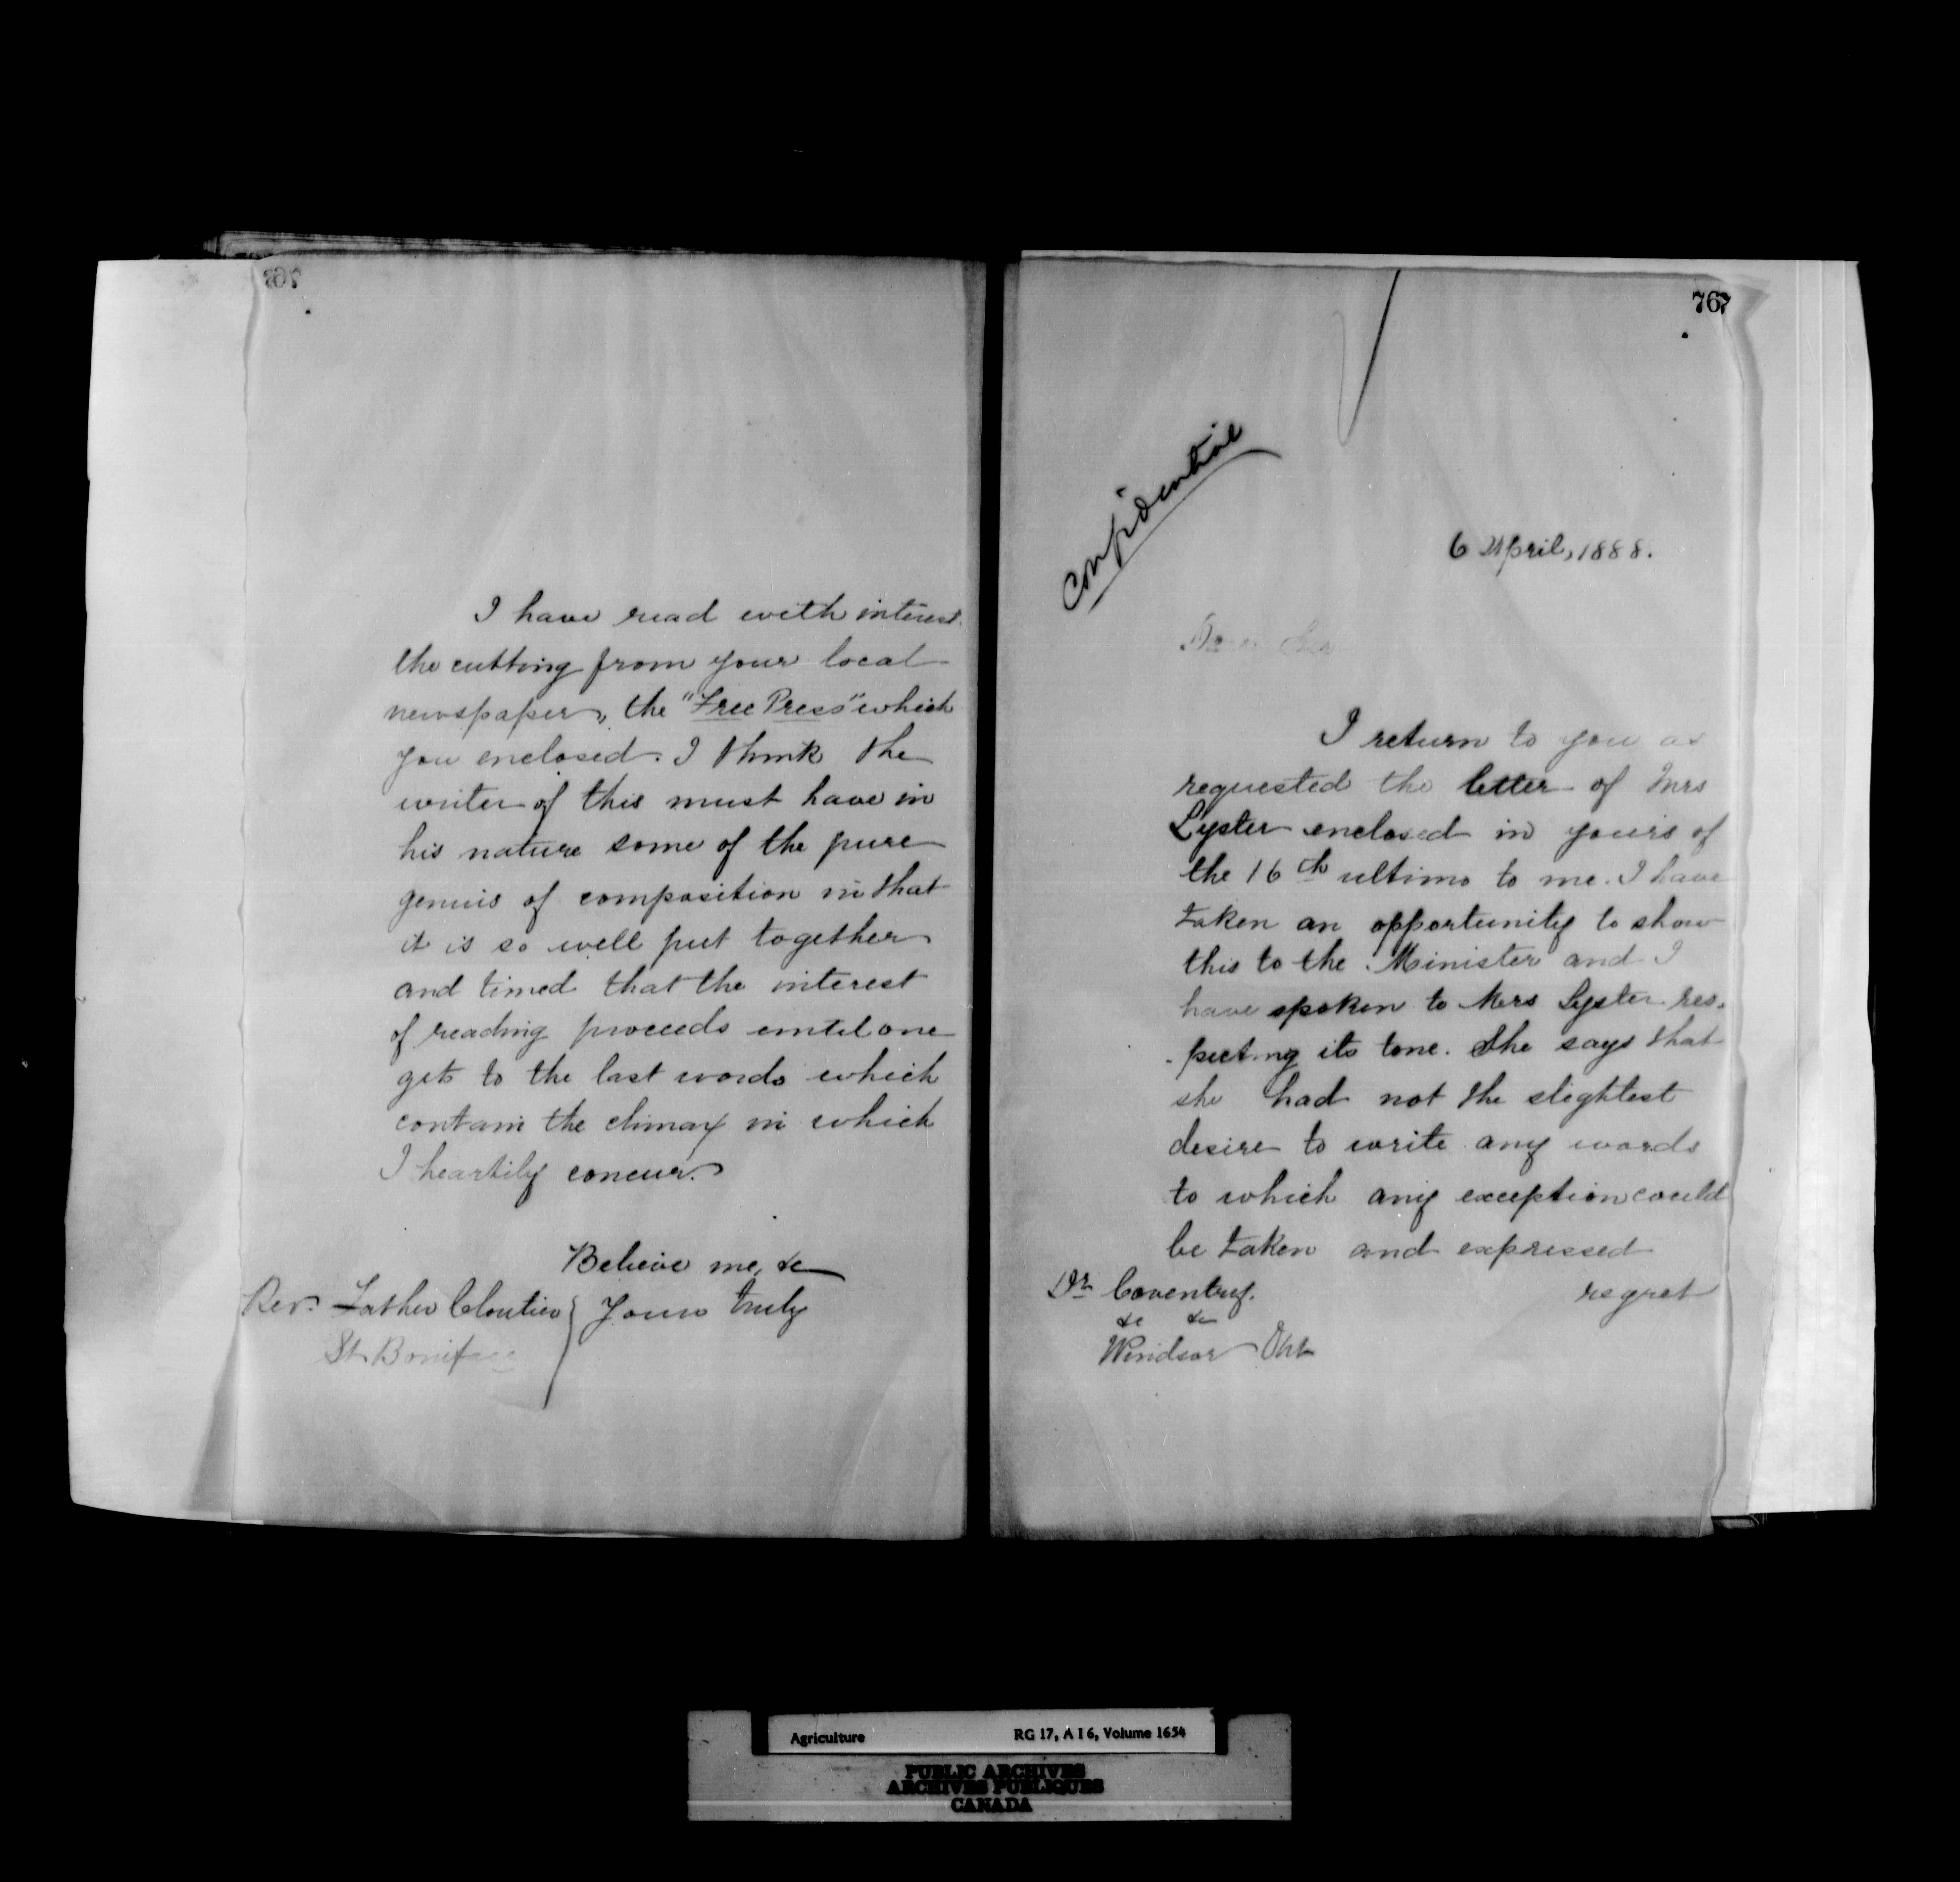 I have read with interest
the cutting from your local
newspaper, the "Free Press" which
you enclosed. I think the
writer of this must have in
his nature some of the pure
genius of composition in that
it is so well put together
and timed that the interest
of reading proceeds until one
gets to the last words which
contain the climax in which
I heartily concur.
Believe me, &c
Yours truly
Rev. Father Cloutier
St Boniface
767
Confidential
6 April, 1888.
Dear Sir
I return to you as
requested the letter of Mrs
Lyster enclosed in yours of
the 16th ultimo to me. I have
taken an opportunity to show
this to the Minister and I
have spoken to Mrs Lyster res-
-pecting its tone. She says that
she had not the slightest
desire to write any words
to which any exception could
be taken and expressed
regret
Dr Coventry.
&c &c
Windsor Ont
Agriculture RG 17, A I 6, Volume 1654
PUBLIC ARCHIVES
ARCHIVES PUBLIQUES
CANADA